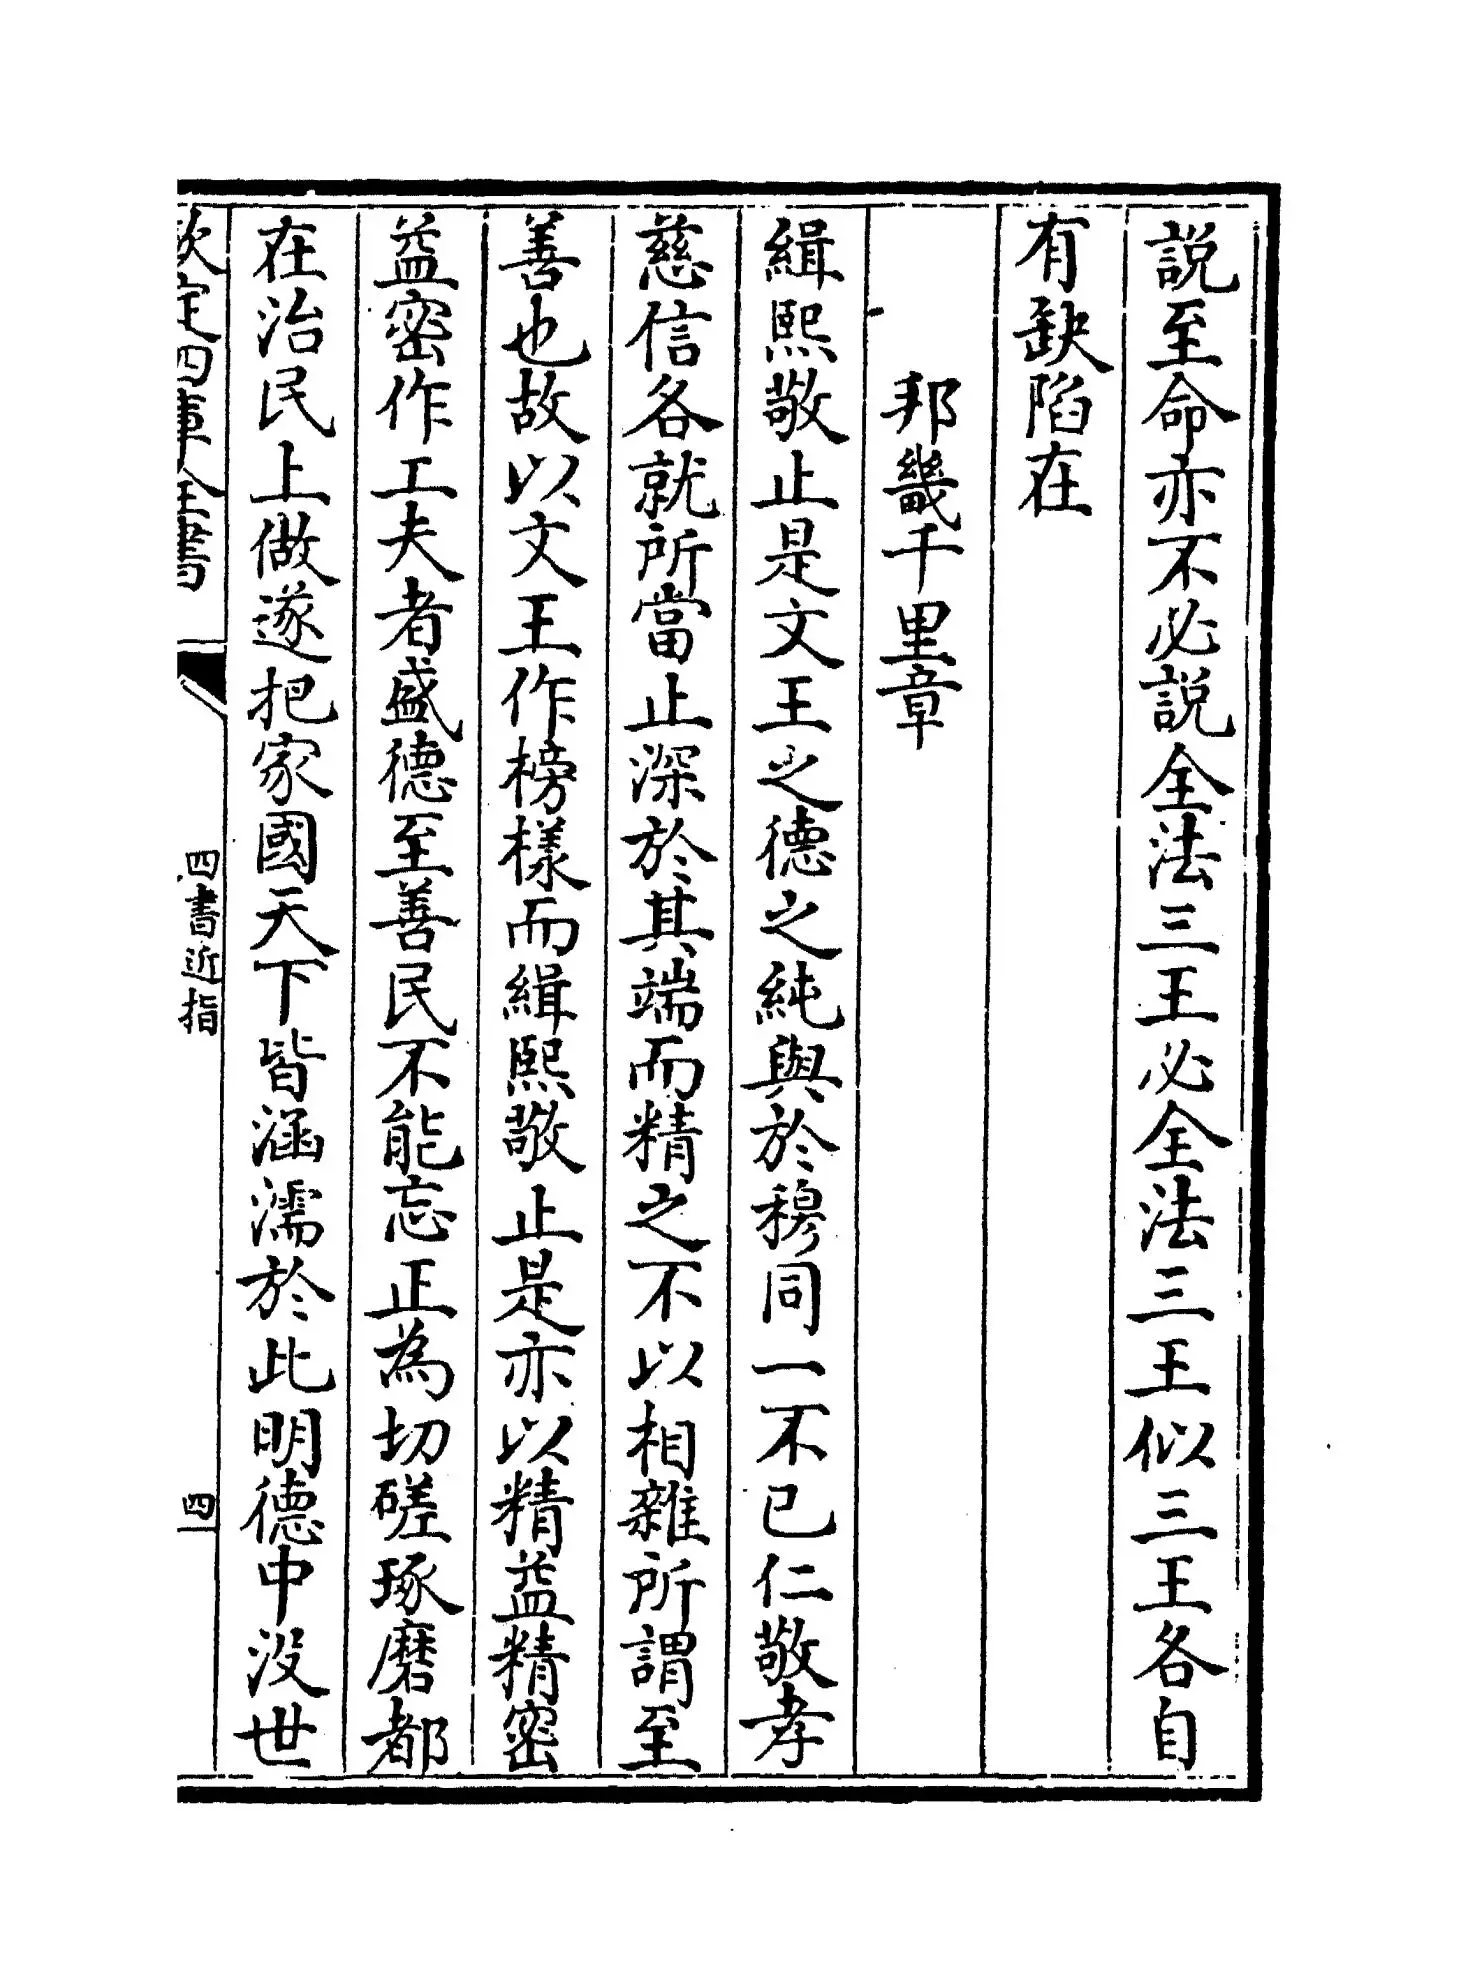 說至命亦不必說全法三王必全法三王似三王各自
有缺陷在
邦畿千里章
緝熙敬止是文王之德之純與於穆同一不已仁敬孝
慈信各就所當止深於其端而精之不以相雜所謂至
善也故以文王作榜樣而緝熙敬止是亦以精益精密
益密作工夫者盛德至善民不能忘正為切磋琢磨都
在治民上做遂把家國天下皆涵濡於此明德中没世
欽定四庫全書
四書近指
四